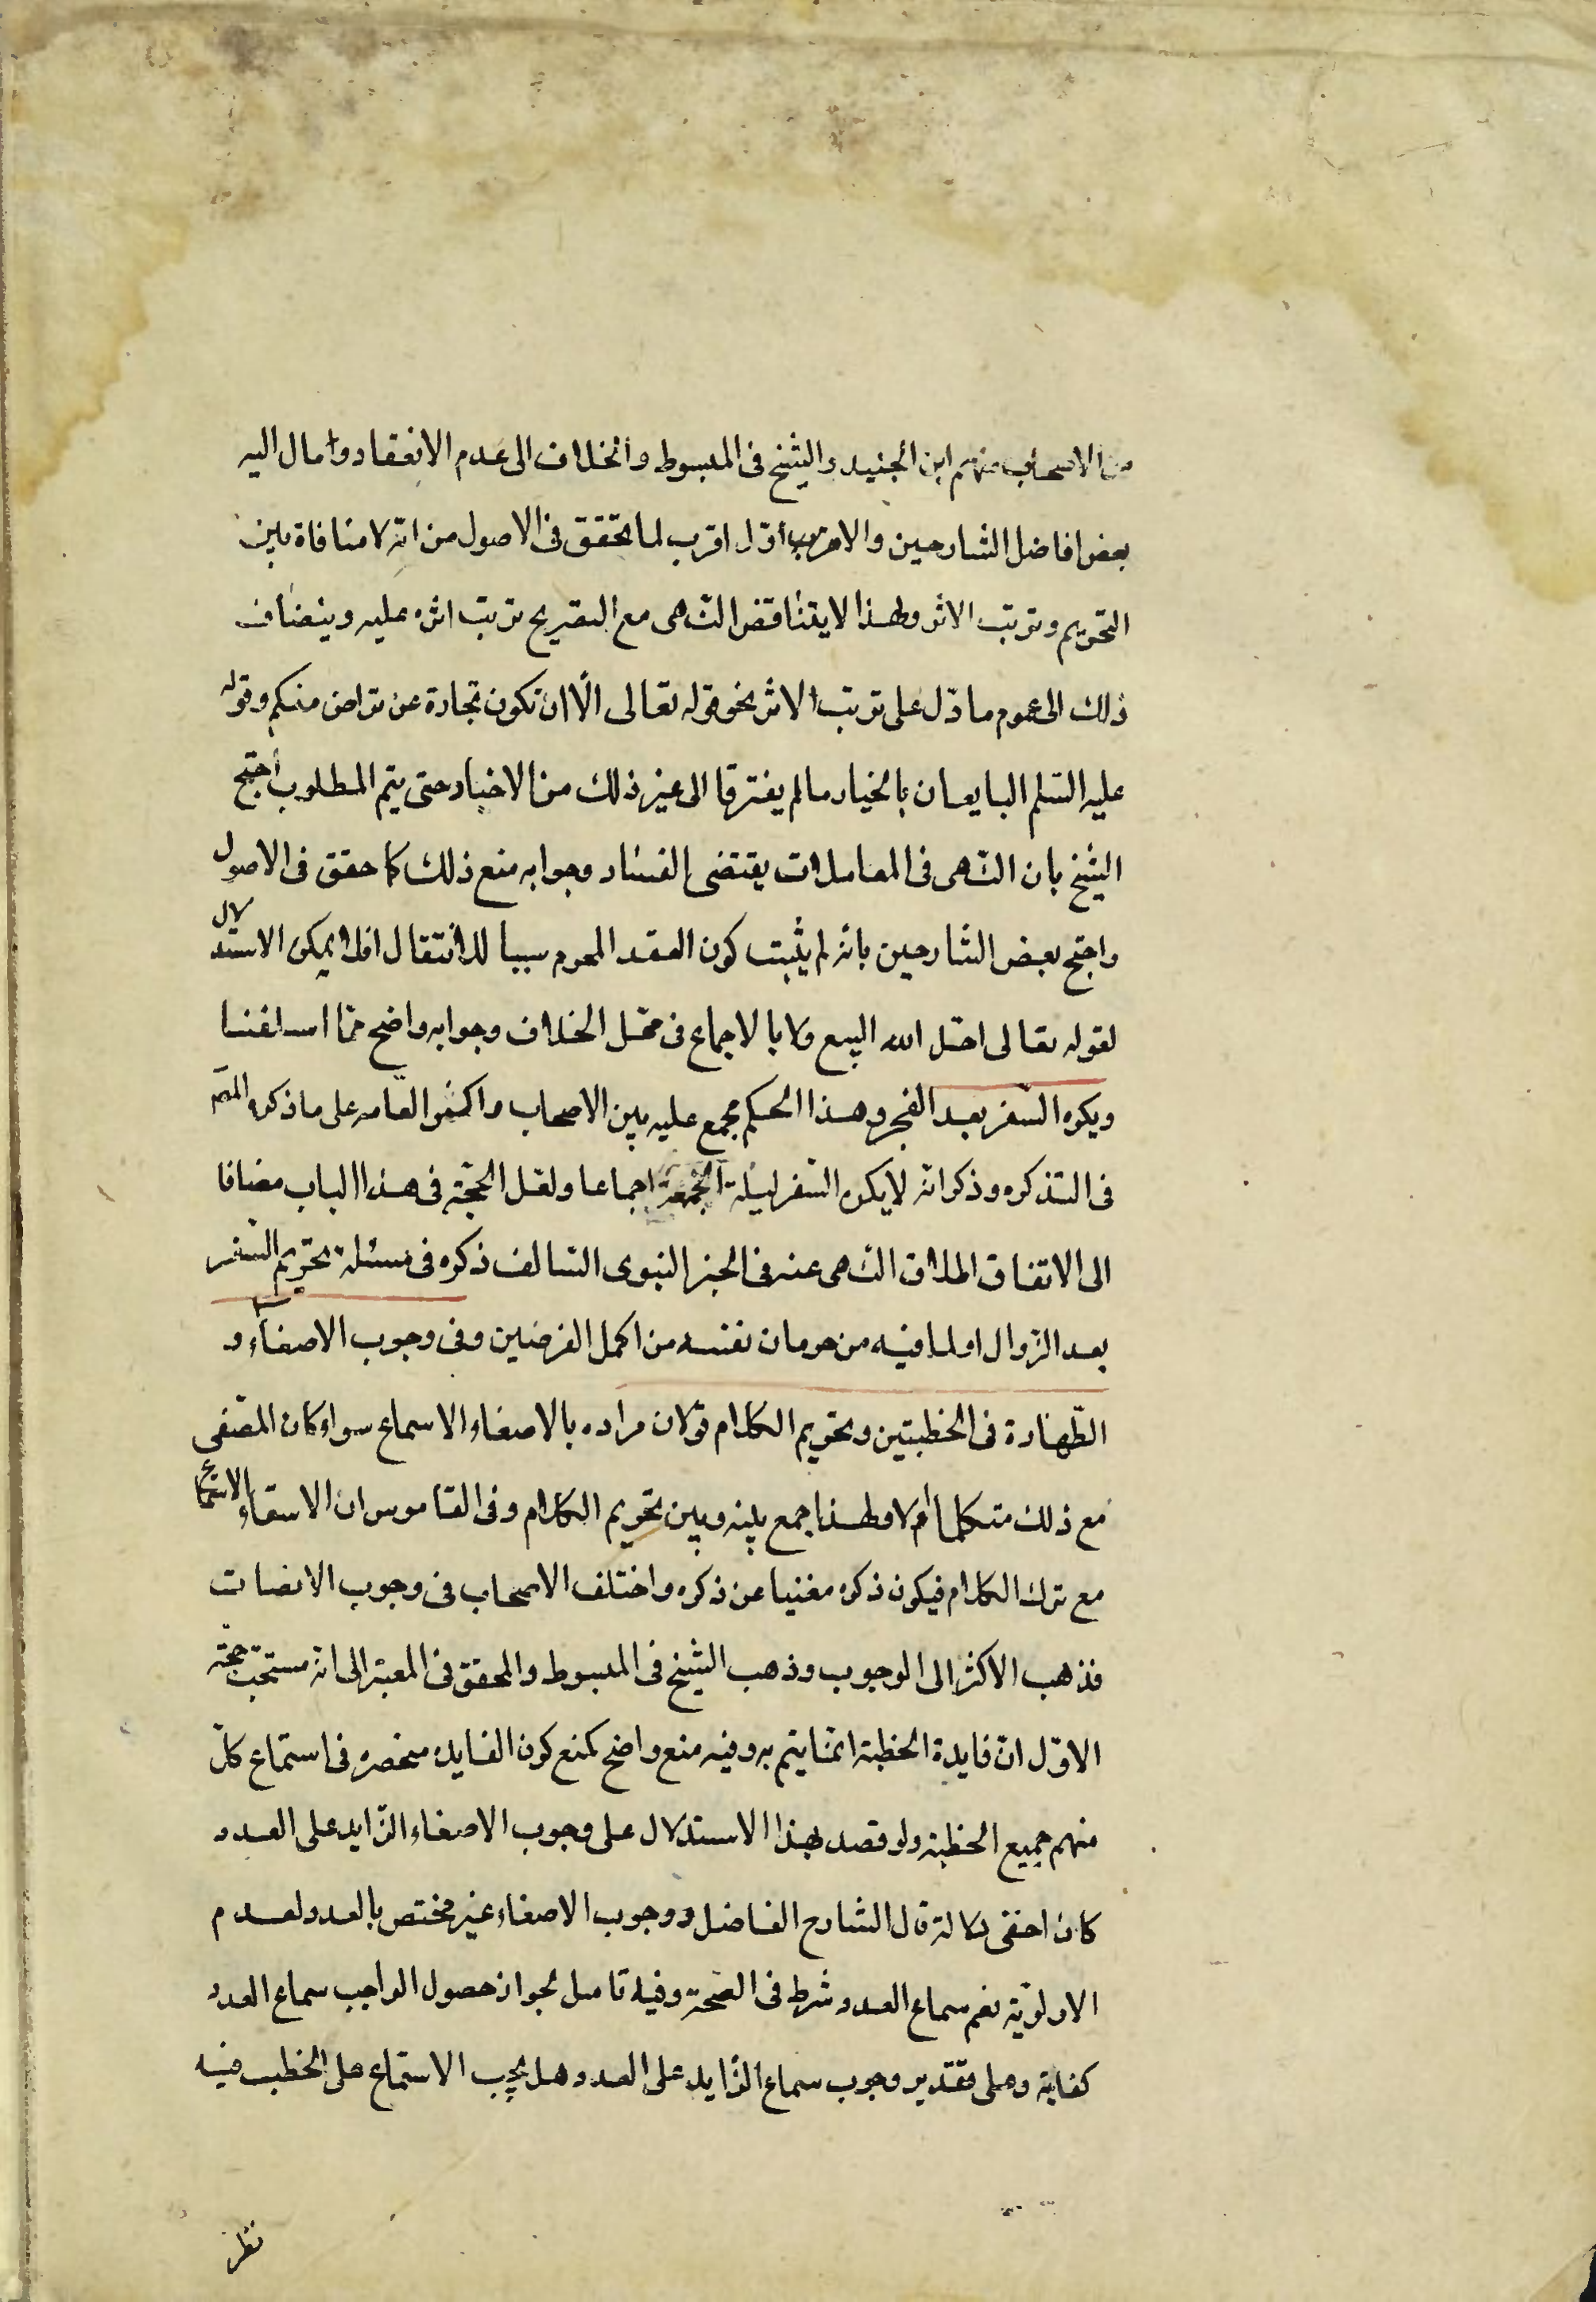 من الاصحاب منهم ابن الجنيد والشيخ فى المبسوط والخلاف الى عدم الانعقاد وامال اليه
بعض افاضل الشارحين والاقرب اوّل اقرب لما تحقق فى الاصول من انه لا منافاة بين
التحريم وترتب الاثر ولهذا لا يتناقض النّهى مع التصريح ترتب اثره عليه وينضاف
ذلك الى عموم ما دلّ على ترتب الاثر نحو قوله تعالى الّا ان تكون تجارة عن تراض منكم وقوله
عليه السّلم البايعان بالخيار ما لم يفترقا الى غير ذلك من الاخبار حتى يتم المطلوب احتج
الشيخ بان النّهى فى المعاملات يقتضى الفساد وجوابه منع ذلك كما حقق فى الاصول
واحتج بعض الشارحين بانه لم يثبت كون العقد المحرم سببا للانتقال اذ لا يمكن الاستدلال
لقوله تعالى احّل الله البيع ولا بالاجماع فى محّل الخلاف وجوابه واضح ممّا اسلفنا
ويكره السّفر بعد الفجر وهذا الحكم مجمع عليه بين الاصحاب واكثر العامه على ما ذكره المصّ
فى التذكره وذكر انه لا يكره السّفر ليلة الجمعة اجماعا ولعل الحجّة فى هذا الباب مضافا
الى الاتفاق الملاق النّهى عنه فى الخبر النبوى السّالف ذكره فى مسئلة تحريم السّفر
بعد الزّوال او لما فيه من حرمان نفسه من اكمل الفرضين وفى وجوب الاصغاء و
الطّهارة فى الخطبتين وتحريم الكلام قولان مراده بالاصغاء الاسماع سواء كان المصّغى
مع ذلك متكلما ام لا ولهذا جمع بينه وبين تحريم الكلام وفى القاموس ان الاصغاء الاستماع
مع ترك الكلام فيكون ذكره مغنيا عن ذكره واختلف الاصحاب فى وجوب الانصات
فذهب الاكثر الى الوجوب وذهب الشيخ فى المبسوط والمحقق فى المعتبر الى انه مستحبّ حجّة
الاوّل انّ فايدة الخطبة انمّا يتم به وفيه منع واضح كمنع كون الفايده منحصره فى استماع كلّ
منهم جميع الخطبة ولو قصد بهذا الاستدلال على وجوب الاصغاء الزّايد على العدد
كان اخفى دلالة قال الشارح الفاضل ووجوب الاصغاء غير مختص بالعدد لعدم
الاولويّة نعم سماع العدد شرط فى الصّحة وفيه تامل لجواز حصول الواجب سماع العدد
كفاية وعلى تقدير وجوب سماع الزّايد على العدد هل يجب الاستماع على الخطب فيه
نظر